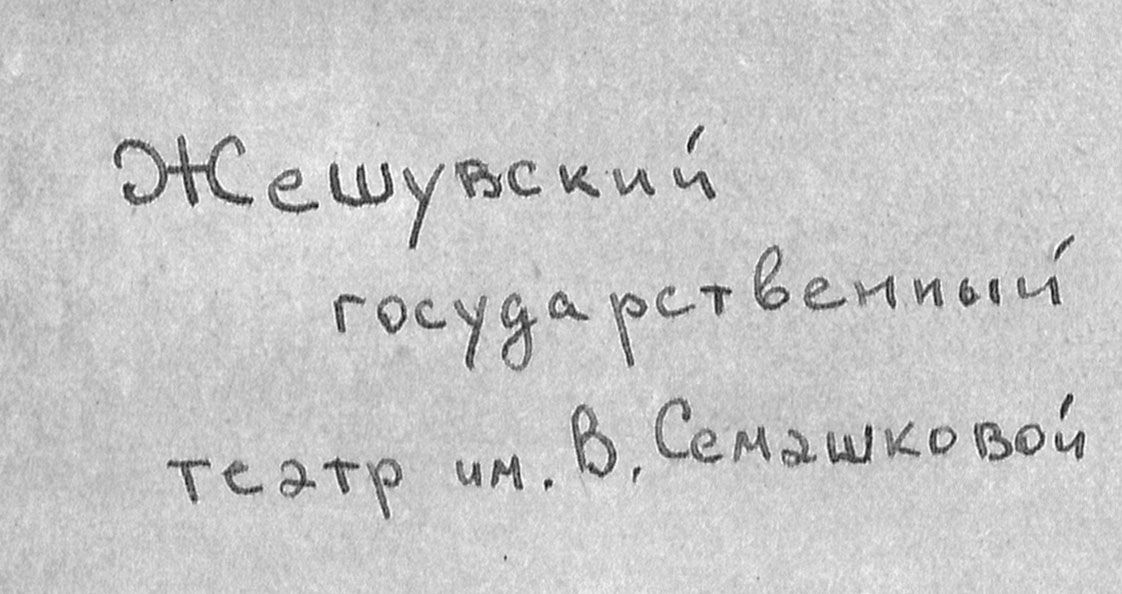 Жешувский
государственный
театр им. В. Семашковой